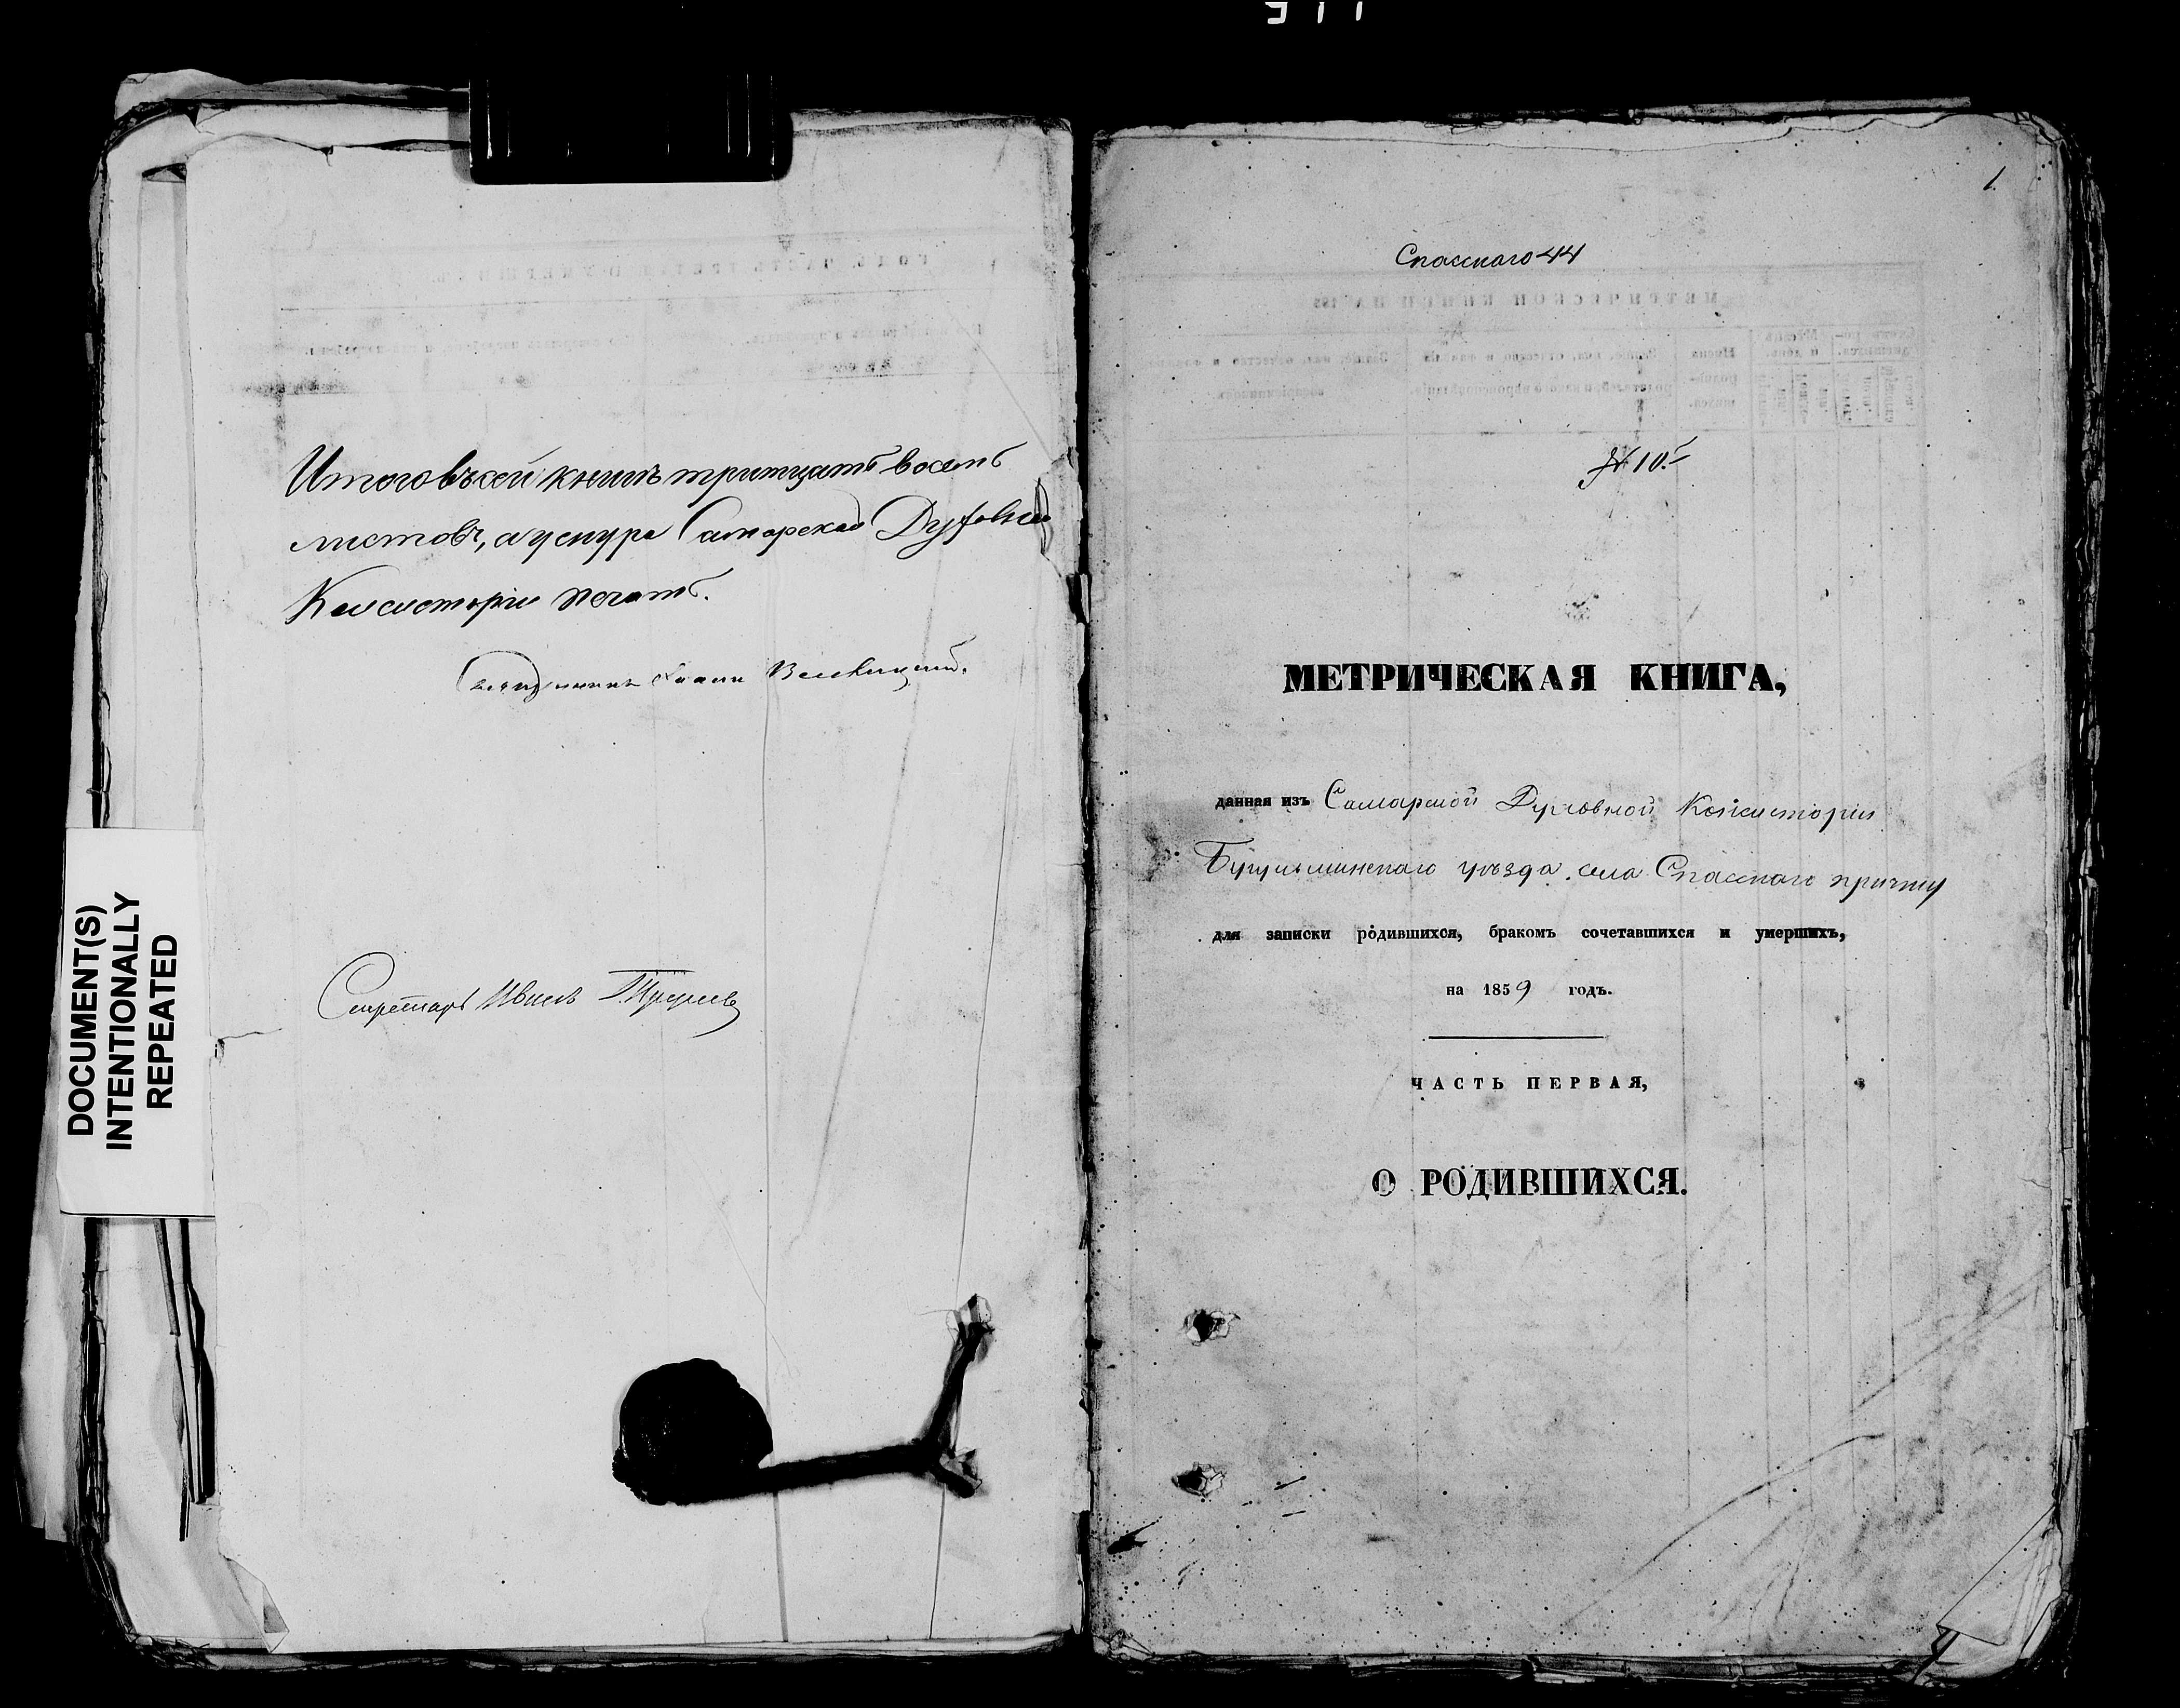 Итого въ сей книгѣ тритцать восемь
листовъ, а у снура Самарской Духовной
Консисторіи печать.
Священникъ Іоаннъ
Секретарь Иванъ
DOCUMENT(S)
INTENTIONALLY
REPEATED
1
Спасскаго 44
№ 10.
МЕТРИЧЕСКАЯ КНИГА,
данная изъ Самарской Духовной Консисторіи
Бугульминскаго уѣзда села Спасскаго причту
для записки родившихся, бракомъ сочетавшихся и умершихъ,
на 1859 годъ.
ЧАСТЬ ПЕРВАЯ,
О РОДИВШИХСЯ.